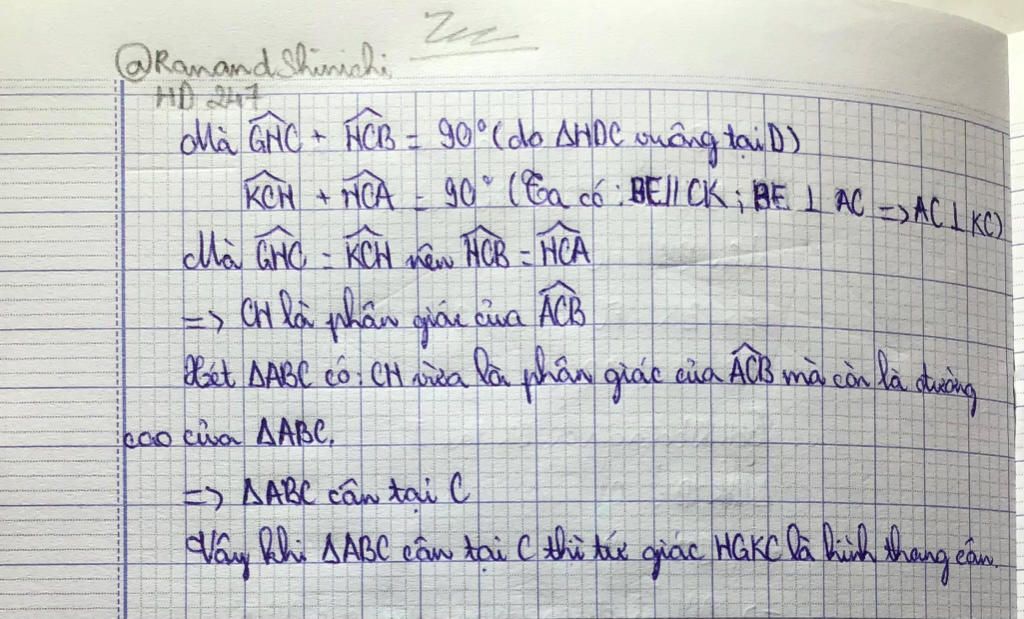 @RanandShinichi
HD 247
Mà \widehat{GHC} + \widehat{HCB} = 90° (do ΔHDC vuông tại D)
\widehat{KCH} + \widehat{HCA} = 90° (Ta có: BE // CK; BE ⊥ AC => AC ⊥ KC)
Mà \widehat{GHC} = \widehat{KCH} nên \widehat{HCB} = \widehat{HCA}
=> CH là phân giác của \widehat{ACB}
Xét ΔABC có: CH vừa là phân giác của \widehat{ACB} mà còn là đường
cao của ΔABC.
=> ΔABC cân tại C
Vậy khi ΔABC cân tại C thì tứ giác HGKC là hình thang cân.